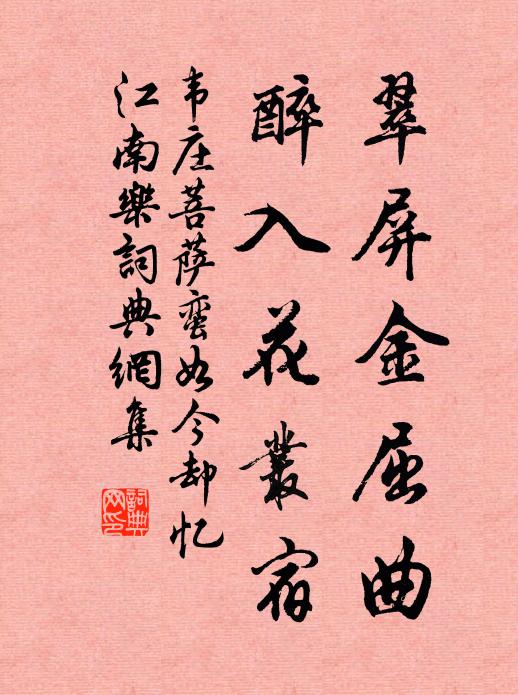 翠屏金屈曲
醉入花叢宿
韦庄菩萨蛮如今却忆
江南樂詞典網集
詞典
网印